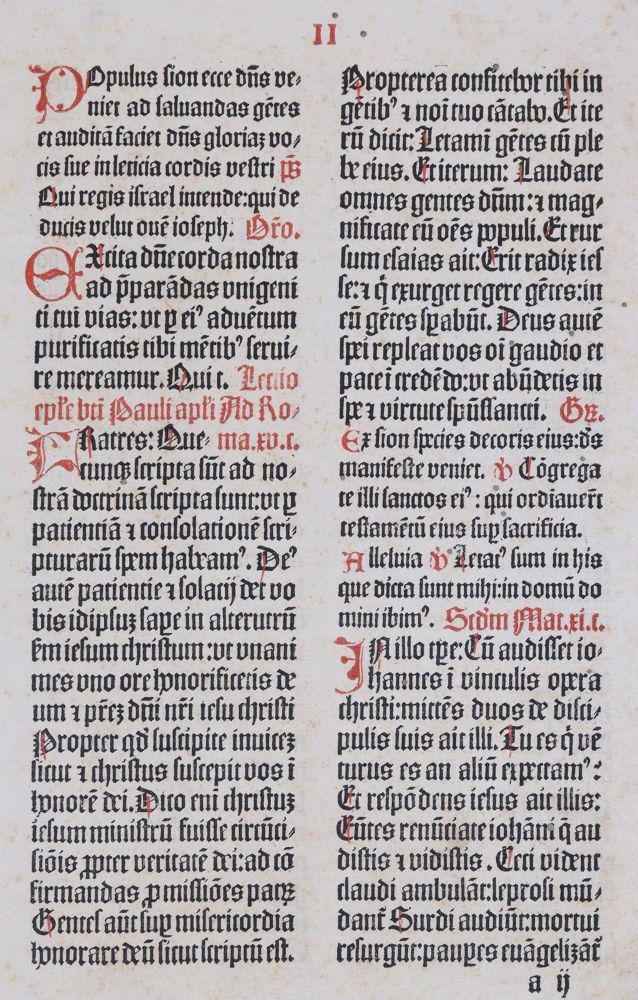 II
POpulus sion ecce dn̄s ve⸗
niet ad saluandas gētes
et auditā faciet dn̄s gloriaꝫ vo⸗
cis sue in leticia cordis vestri p̄s
Qui regis israel intende:qui de
ducis velut ouē ioseph. Or̄o.
EXcita dn̄e corda nostra
ad p̄parādas vnigeni
ti tui vias: vt ꝑ eiꝰ aduētum
purificatis tibi mētibꝰ serui⸗
re mereamur. Qui t. Lectio
ep̄le bt̄i Pauli apl̄i Ad Ro⸗
FRatres: Que⸗ ma.xv.c.
cunqꝫ scripta sūt ad no⸗
strā doctrinā scripta sunt:vt ꝑ
patientiā ⁊ consolationē scri⸗
pturarū spem habeamꝰ. Deꝰ
autē patientie ⁊ solacij det vo
bis idipsuꝫ sape in alterutrū
s̄m iesum christum :vt vnani
mes vno ore honorificetis de
um ⁊ pr̄eꝫ dn̄i nr̄i iesu christi
Propter qd̄ suscipite inuiceꝫ
sicut ⁊ christus suscepit vos ī
honorē dei. Dico eni christuꝫ
iesum ministrū fuisse circūci⸗
siōis ꝓpter veritatē dei:ad cō
firmandas ꝓmissiōes patꝝ
Gentes aūt suꝑ misericordia
honorare deū sicut scriptū est.
Propterea confitebor tibi in
gētibꝰ ⁊ noi tuo cātabo. Et ite
rū dicit: Letamī gētes cū ple
be eius. Et iterum: Laudate
omnes gentes dn̄m: ⁊ mag⸗
nificate eū oēs ppuli. Et rur
sum esaias ait: Erit radix ies
se: ⁊ q̄ exurget regere gētes:in
eū gētes sꝑabūt. Deus autē
spei repleat vos oī gaudio et
pace ī credēdo:vt abūdetis in
spe ⁊ virtute sp̄ussancti. Gr̄.
Ex sion species decoris eius:ds̄
manifeste veniet. ℣ Cōgrega
te illi sanctos eiꝰ: qui ordīauer̄t
testamētū eius suꝑ sacrificia.
Alleluia ℣ Letatꝰ sum in his
que dicta sunt mihi:in domū do
mini ibimꝰ. Scd̄m Mat.xi.c.
IN illo tꝑe: Cū audisset io⸗
hannes ī vinculis opera
christi:mittēs duos de disci⸗
pulis suis ait illi. Tu es q̄ vē
turus es an aliū expectamꝰ:
Et respōdens iesus ait illis:
Eūtes renūciate iohāni q̄ au
distis ⁊ vidistis. Ceci vident
claudi ambulāt:leprosi mū⸗
danť Surdi audiūt:mortui
resurgūt:pauꝑes euāgelizāť
a ij